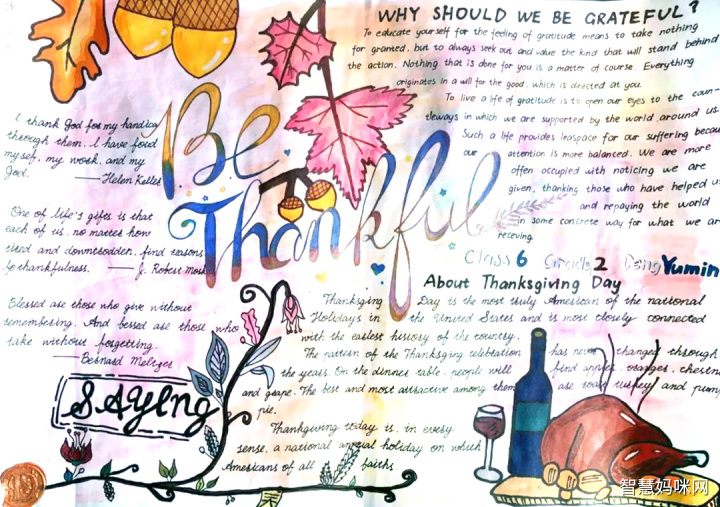 WHY SHOULD WE BE GRATEFUL?
To educate yourself for the feeling of gratitude means to take nothing
for granted, but to always seek out and value the kind that will stand behind
the action. Nothing that is done for you is a matter of course. Everything
originates in a will for the good, which is directed at you.
To live a life of gratitude is to open our eyes to the coun-
tleways in which we are supported by the world around us.
Such a life provides lesspace for our suffering becau
our attention is more balanced. We are more
offen occupied with noticing we are
given, thanking those who have helped us
and repaying the world
in some concrete way for what we are
receving.
Be
Thankful
I thank God for my handica
through them. I have foud
myself, my work, and my
God. —— Helen Keller
One of life's gifts is that
each of us, no matter how
tired and downtrodden, find reasons
for thankfulness. —— J. Robert Mosk
Blessed are those who give without
remembering. And bessed are those who
take without forgetting.
—— Bernard Meltzer
SAYING
Class 6 Grade 2 Deng Yumin
About Thanksgiving Day
Thanksging Day is the most truly American of the national
Holidays in the United States and is most closely connected
with the earlest history of the country.
The pattern of the Thanksging celebration has never changed through
the years. On the dinner table, people will find apples, oragges, chestnu
and grape. The best and most attractive among them are roast turfey and pump
pie.
Thankgiving today is, in every
sense, a national annual holiday on which
Americans of all faiths
智慧妈咪网